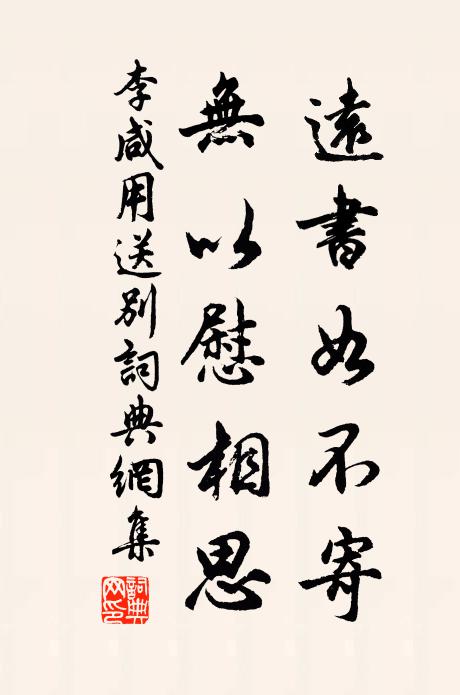 遠書如不寄
無以慰相思
李咸用送別詞典網集
詞典網印